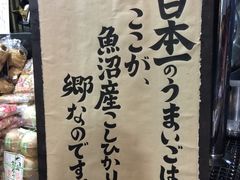 日本一のうまいごは
ここが、
魚沼産こしひかり
郷なのです